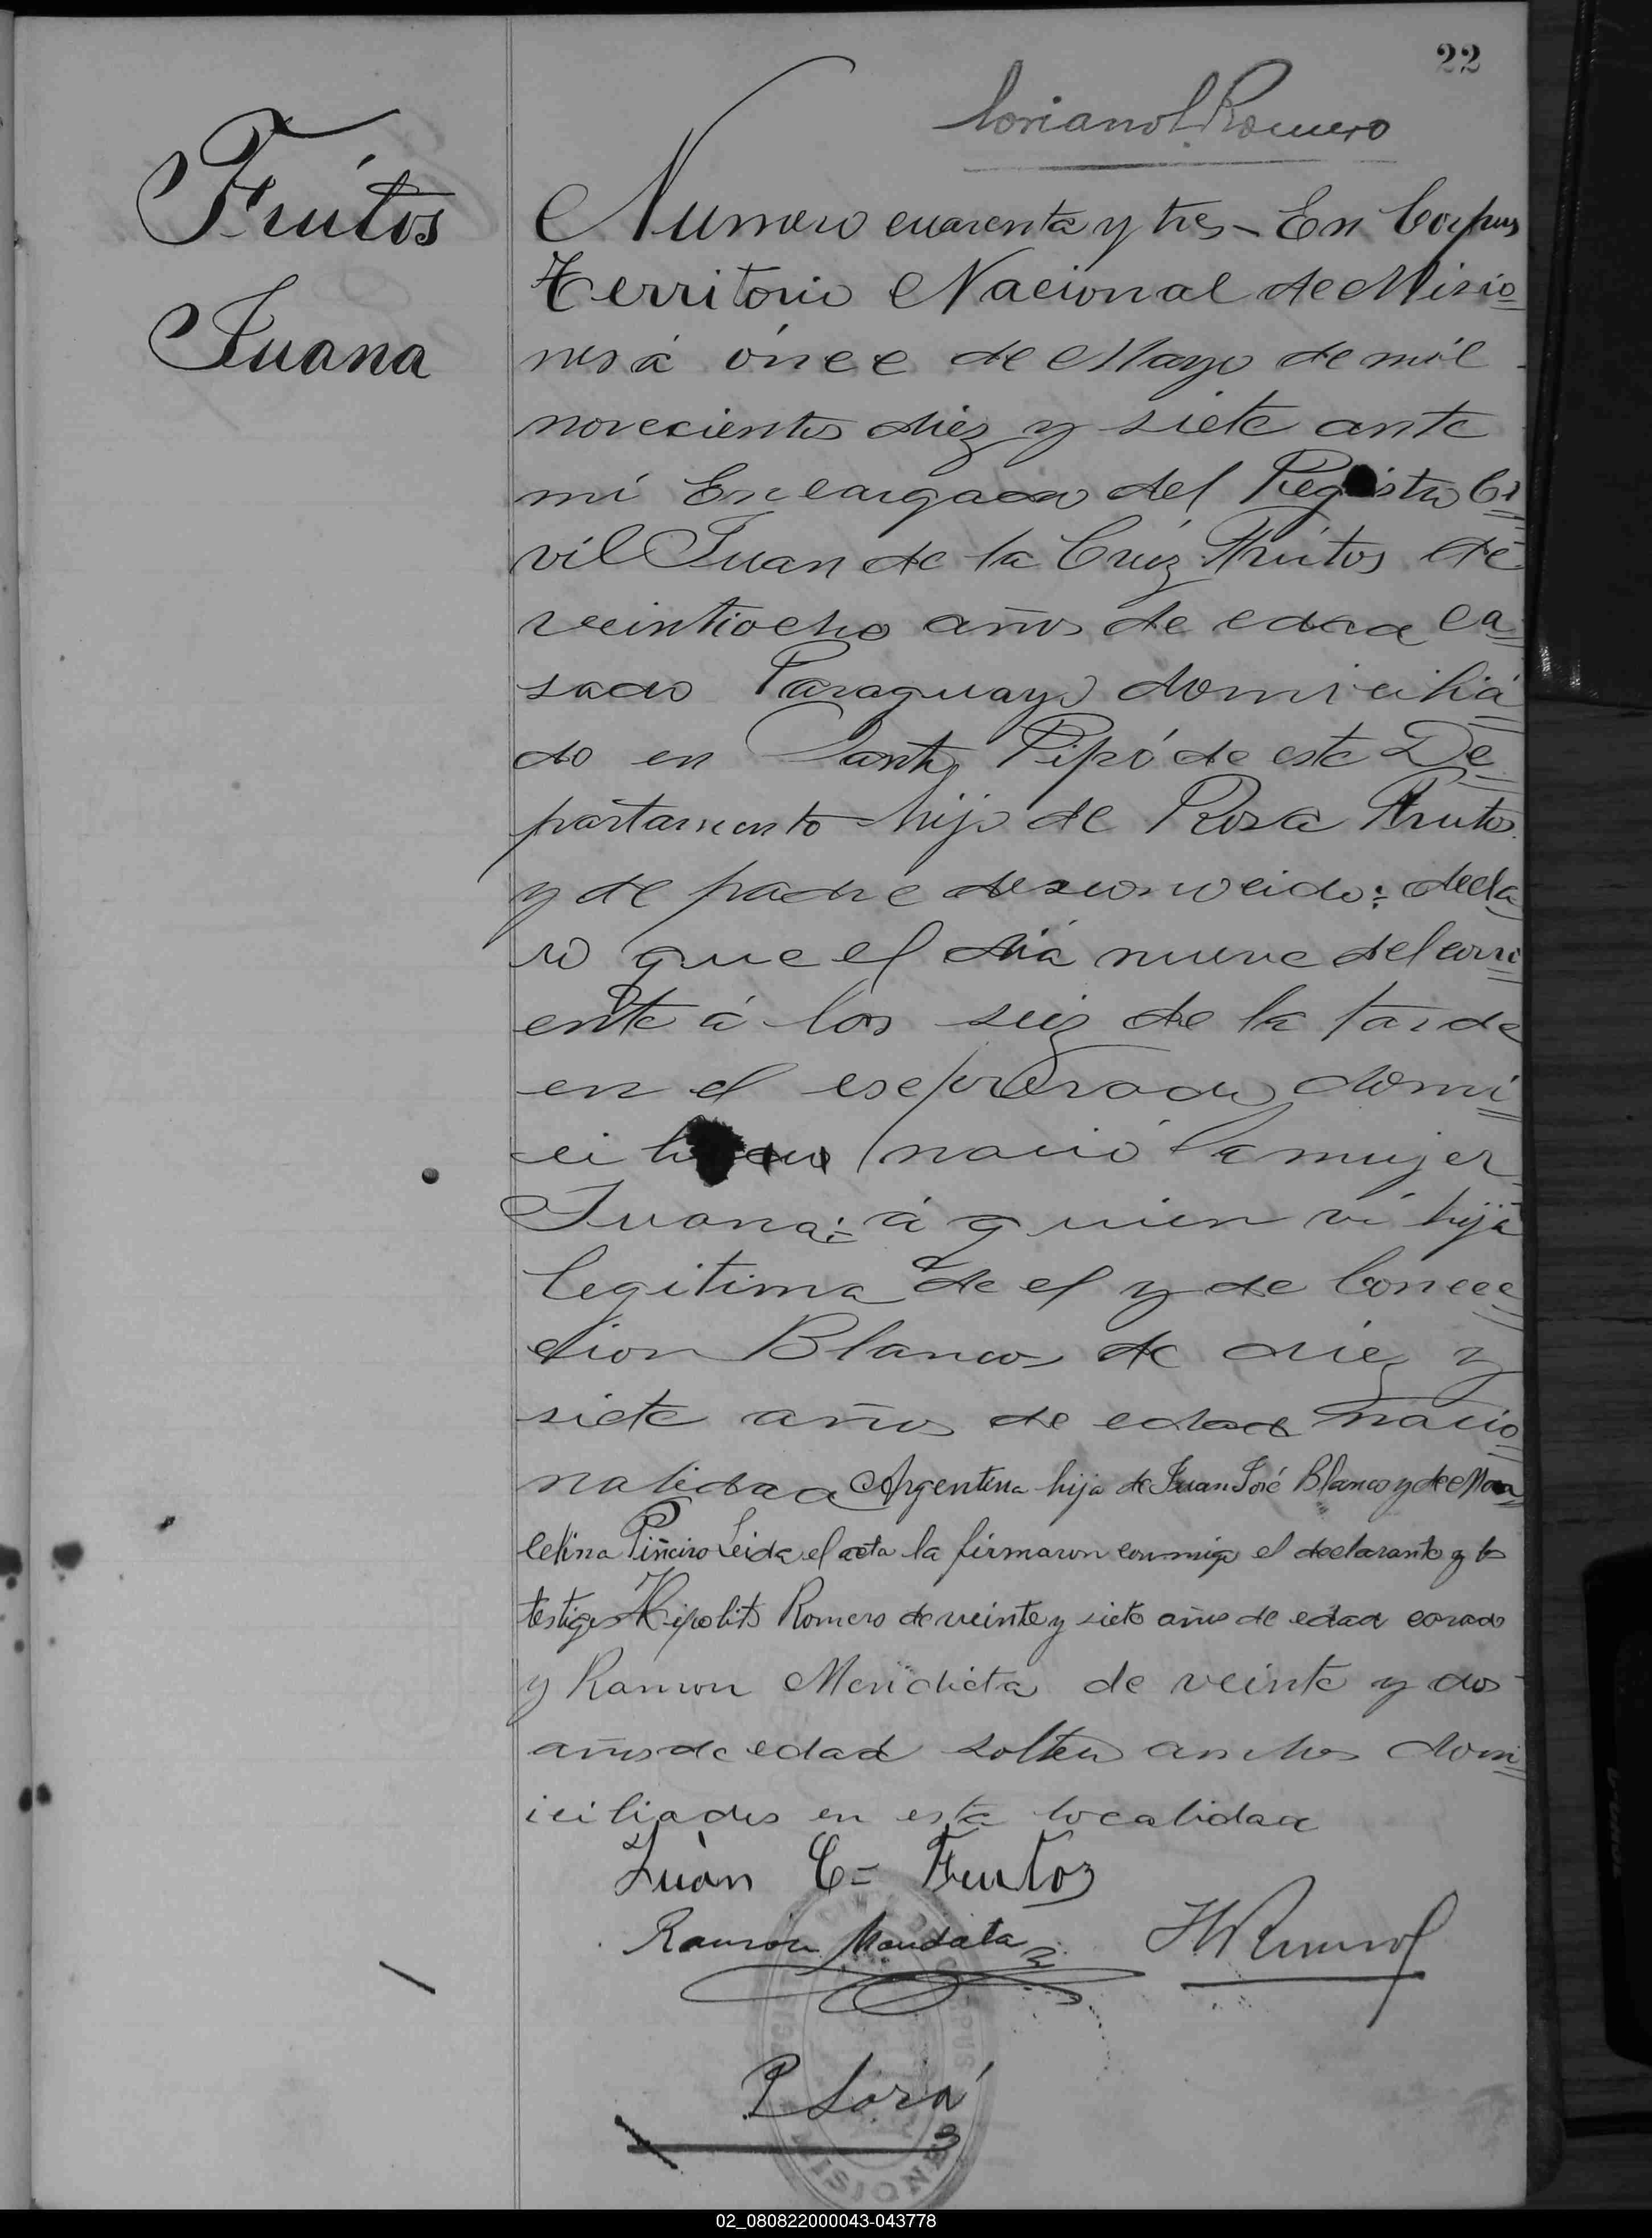 22
Lorianol Romero
Frútos
Juana
Numero cuarenta y tres - En Corpus
Territorio Nacional de Misio
nes á ónce de Mayo de mil
novecientos diez y siete ante
mi Encargado del Registro Ci
vil Juan de la Cruz Frútos de
veintiocho años de edad ca
sado Paraguayo domiciliá
do en Santo Pipó de este De
partamento hijo de Rosa Frutos
y de padre desconocido: decla
ro que el dia nueve del corri
ente á las seis de la tarde
en el espresado domi
cilio nació la mujer
Juana: á quien vi hija
legitima de el y de Concec
cion Blanco de diez y
siete años de edad nacio
nalidad Argentina hija de Juan José Blanco y de Mar
celina Piñeiro Leida el acta la firmaron conmigo el declarante y los
testigos Hipolito Romero de veinte y siete años de edad casado
y Ramon Mendieta de veinte y dos
años de edad soltero ambos dom
iciliados en esta localidad
Juan C= Frutos
Ramón Mendieta
H Romero
P Lorá
CORPUS
MISIONES
02_080822000043-043778